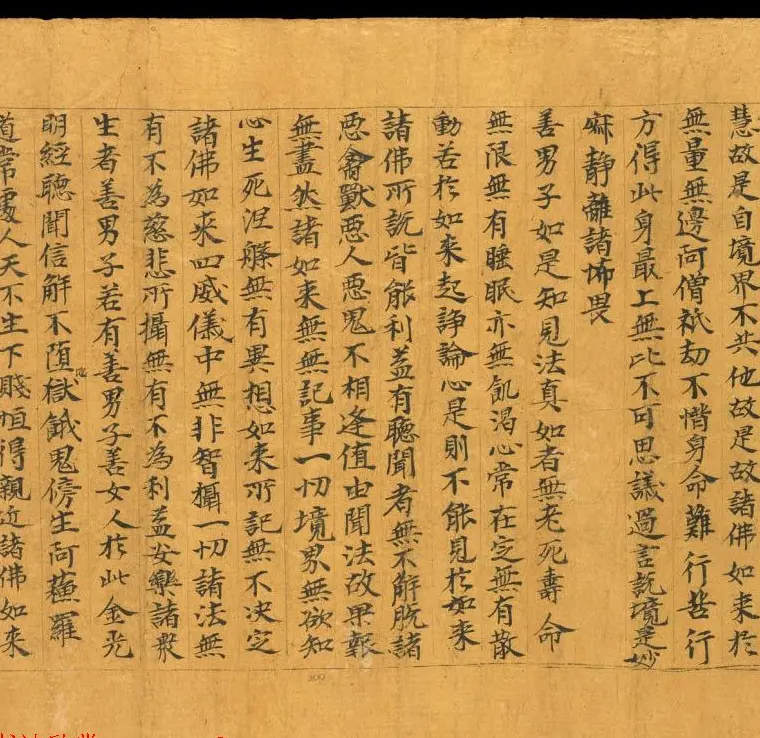 慧故是自境界不共他故是故諸佛如来於
無量無邊阿僧祇劫不惜身命難行苦行
方得此身最上無比不可思議過言說境是妙
寂静離諸怖畏
善男子如是知見法真如者無老死壽命
無限無有睡眠亦無飢渴心常在定無有散
動若於如来起諍論心是則不能見於如来
諸佛所說皆能利益有聽聞者無不解脫諸
惡禽獸惡人惡鬼不相逢值由聞法故果報
無盡然諸如来無無記事一切境界無欲知
心生死涅槃無有異想如来所記無不決定
諸佛如来四威儀中無非智攝一切諸法無
有不為慈悲所攝無有不為利益安樂諸衆
生者善男子若有善男子善女人於此金光
明經聽聞信解不墮地獄餓鬼傍生阿蘓羅
道常處人天不生下賤恒得親近諸佛如来